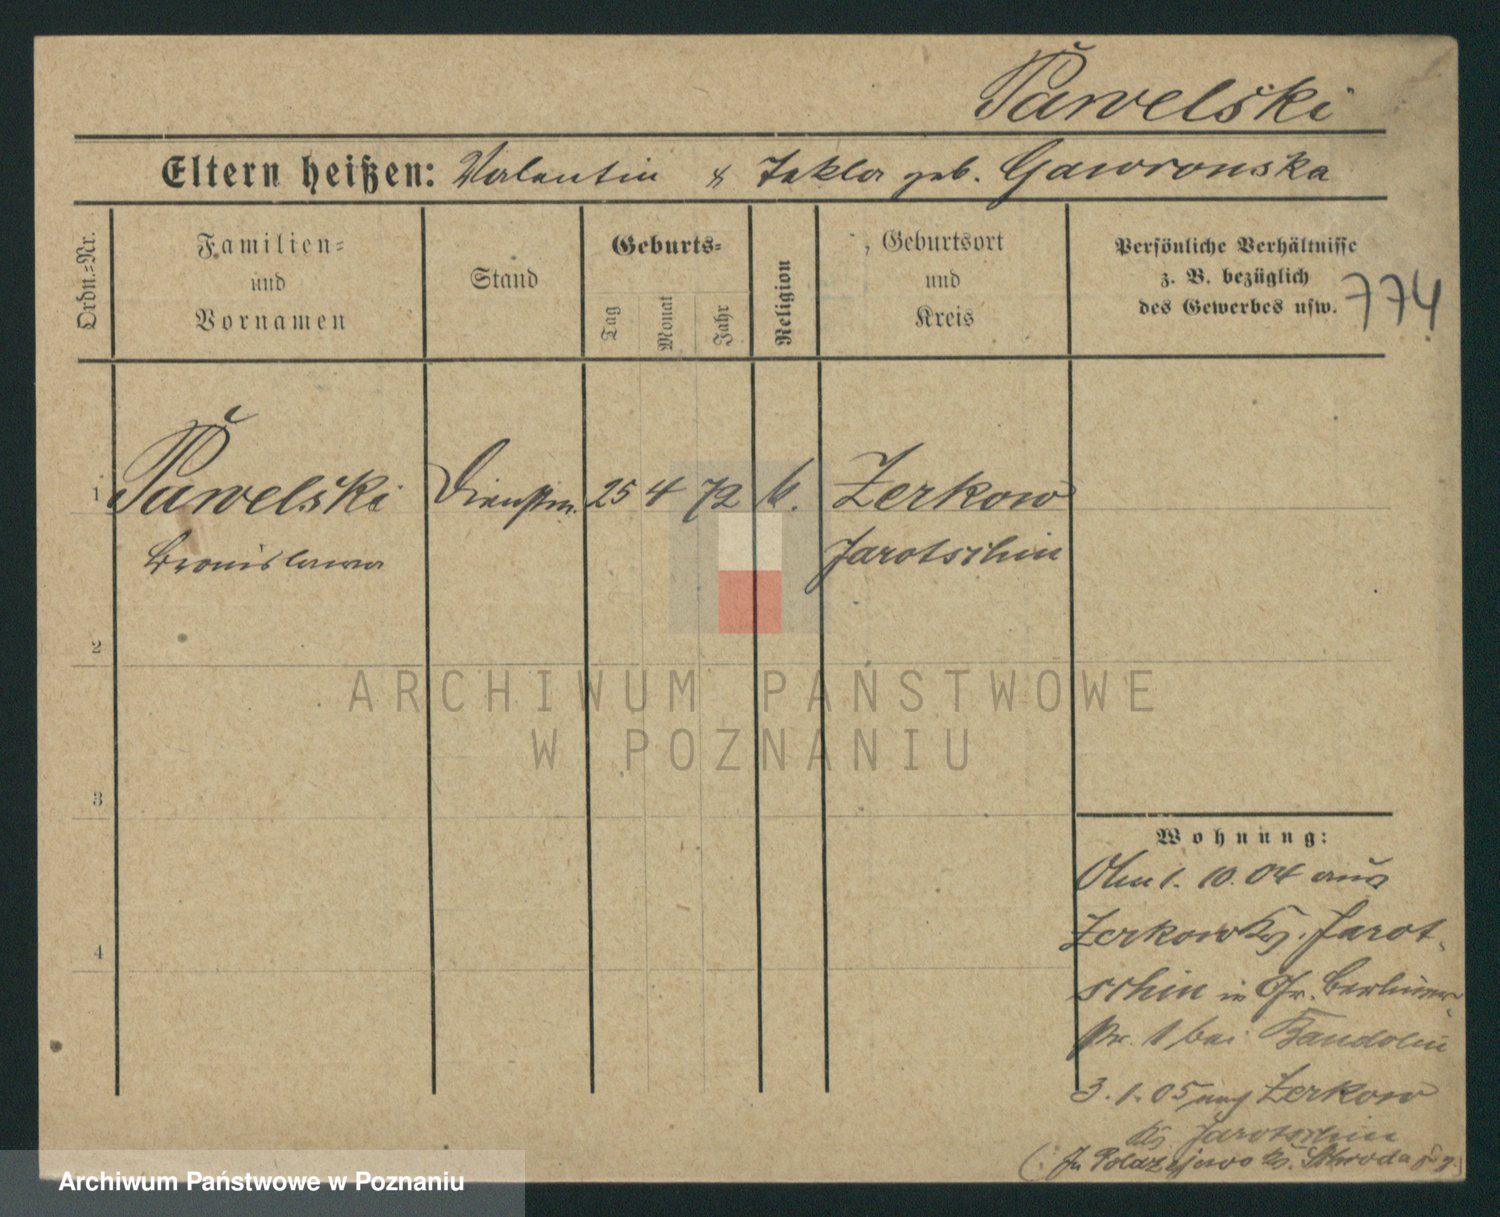 Pawelski
Eltern heißen: Valentin & Tekla geb. Gawronska
Ordn.=Nr.
Familien=
und
Vornamen
Stand
Geburts=
Tag
Monat
Jahr
Religion
Geburtsort
und
Kreis
Persönliche Verhältnisse
z. B. bezüglich
des Gewerbes usw.
774
1 Pawelski Dienstm. 25 4 72 k. Zerkow
Bronislawa Jarotschin
2
3
4
ARCHIWUM PAŃSTWOWE
W POZNANIU
Wohnung:
1. 10. 04 aus
Zerkow Kr. Jarot-
schin in Gr. Berliner-
str. 1 bei
3. 1. 05 nach Zerkow
Kr. Jarotschin
Kr. Schroda
Archiwum Państwowe w Poznaniu